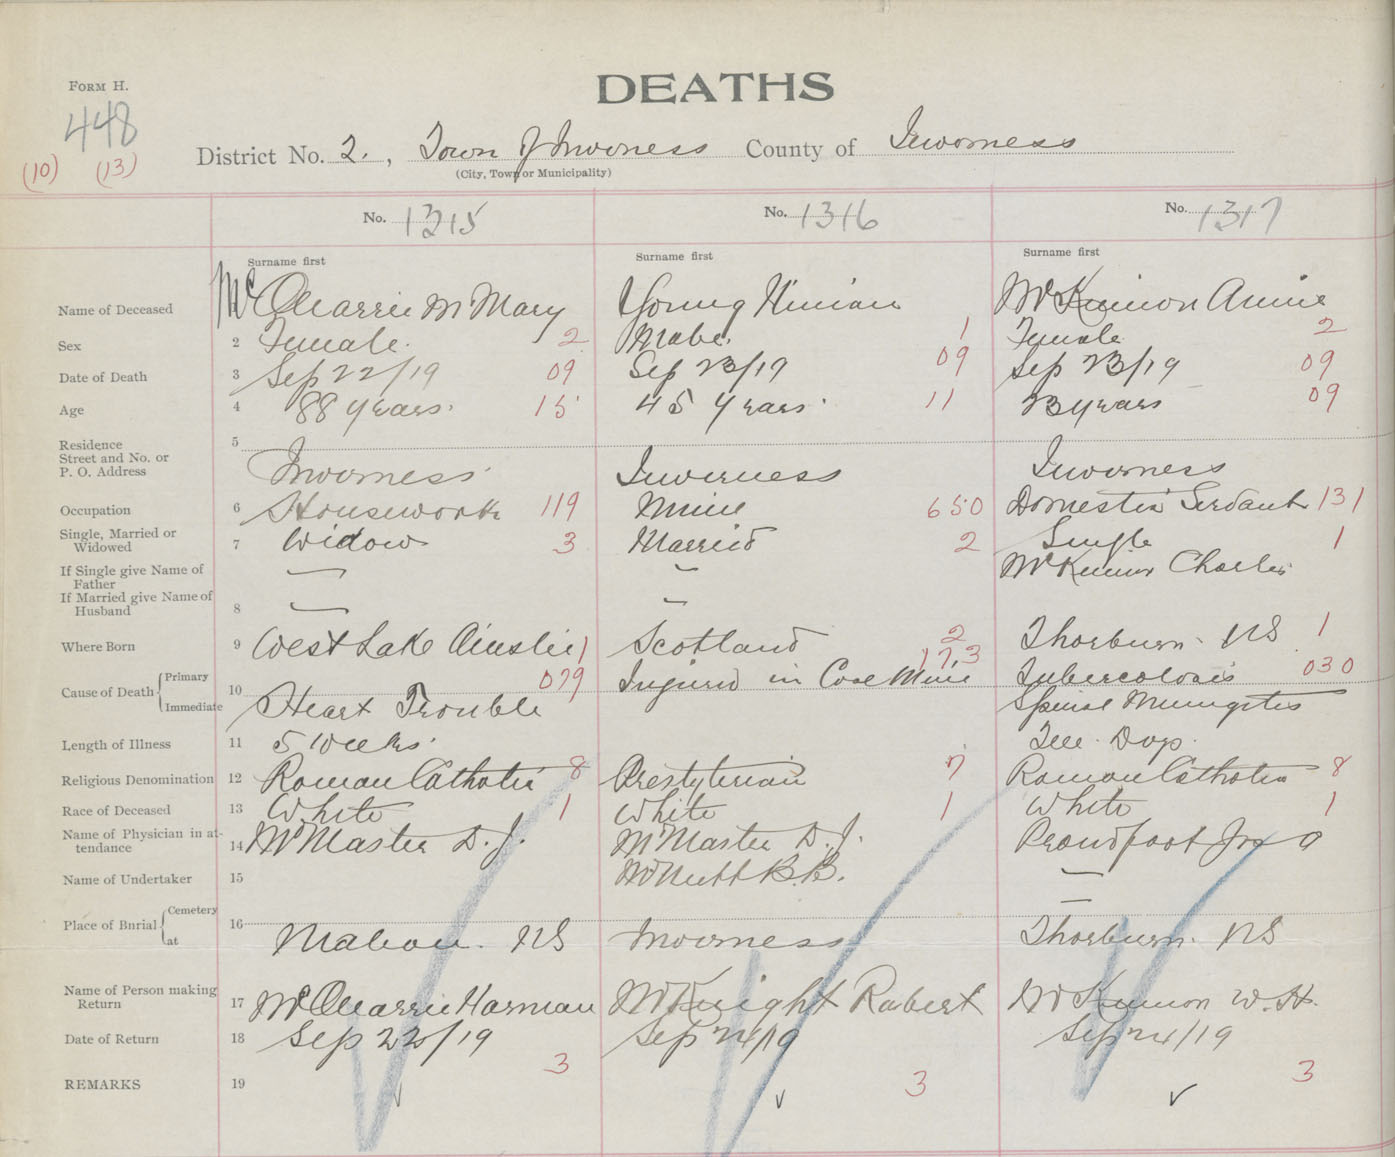 FORM H.
DEATHS
448
(10) (13)
District No. 2. , Town of Inverness County of Inverness
(City, Town or Municipality)
No. 1315 No. 1316 No. 1317
Surname first Surname first Surname first
Name of Deceased McQuarrie M Mary Young Ninian McKinnon Annie
Sex 2 Female. 2 Male. 1 Female 2
Date of Death 3 Sep 22/19 09 Sep 23/19 09 Sep 23/19 09
Age 4 88 years. 15 45 years. 11 23 years 09
Residence 5
Street and No. or
P. O. Address Inverness Inverness Inverness
Occupation 6 Housework 119 Mine 650 Domestic Servant 131
Single, Married or
Widowed 7 Widow 3 Married 2 Single 1
If Single give Name of
Father — – McKinnon Charles
If Married give Name of
Husband 8 — –
Where Born 9 West Lake Ainslie 1 Scotland 2 Thorburn. NS 1
Cause of Death { Primary 10 079 Injured in Coal Mine 173 Tuberculosis 030
Immediate Heart Trouble Spinal Meningitis
Length of Illness 11 5 weeks. Ten Days.
Religious Denomination 12 Roman Catholic 8 Presbyterian 7 Roman Catholic 8
Race of Deceased 13 White 1 White 1 White 1
Name of Physician in at-
tendance 14 McMaster D. J. McMaster D. J. Proudfoot Jno A
Name of Undertaker 15 McNutt B.B. —
Place of Burial { Cemetery 16 —
at Mabou. NS Inverness Thorburn. NS
Name of Person making
Return 17 McQuarrie Harman McKnight Robert McKinnon W. H.
Date of Return 18 Sep 22/19 Sep 24/19 Sep 24/19
3 3 3
REMARKS 19